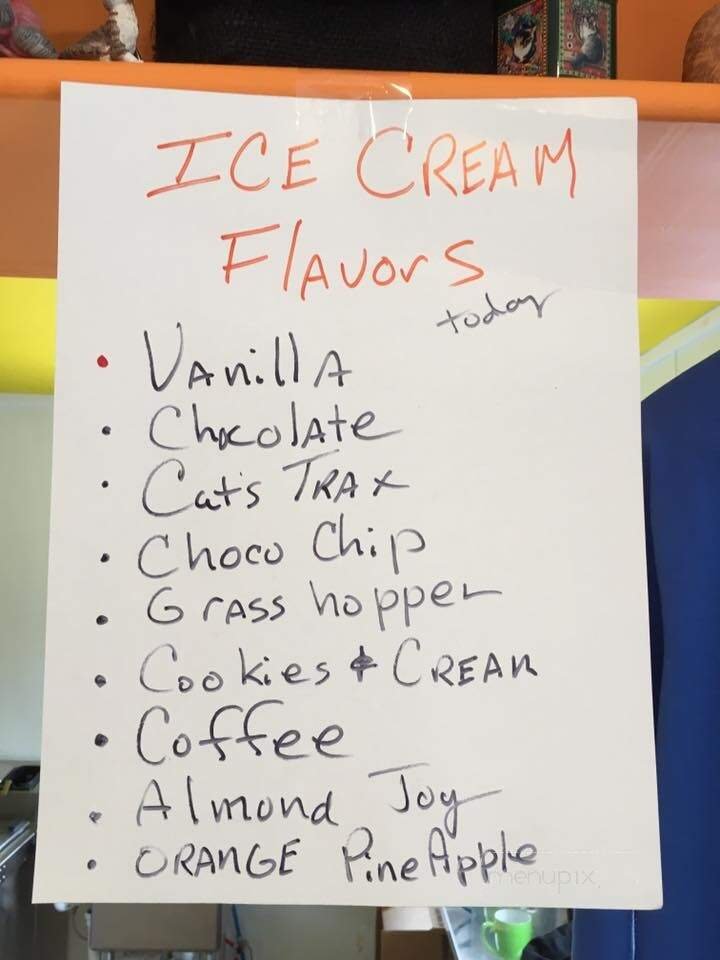 ICE CREAM
FlAvors
today
• VAnillA
• ChocolAte
• Cat's TRAX
• Choco Chip
• GrAss hopper
• Cookies & CREAM
• Coffee
• Almond Joy
• ORANGE PineApple
menupix